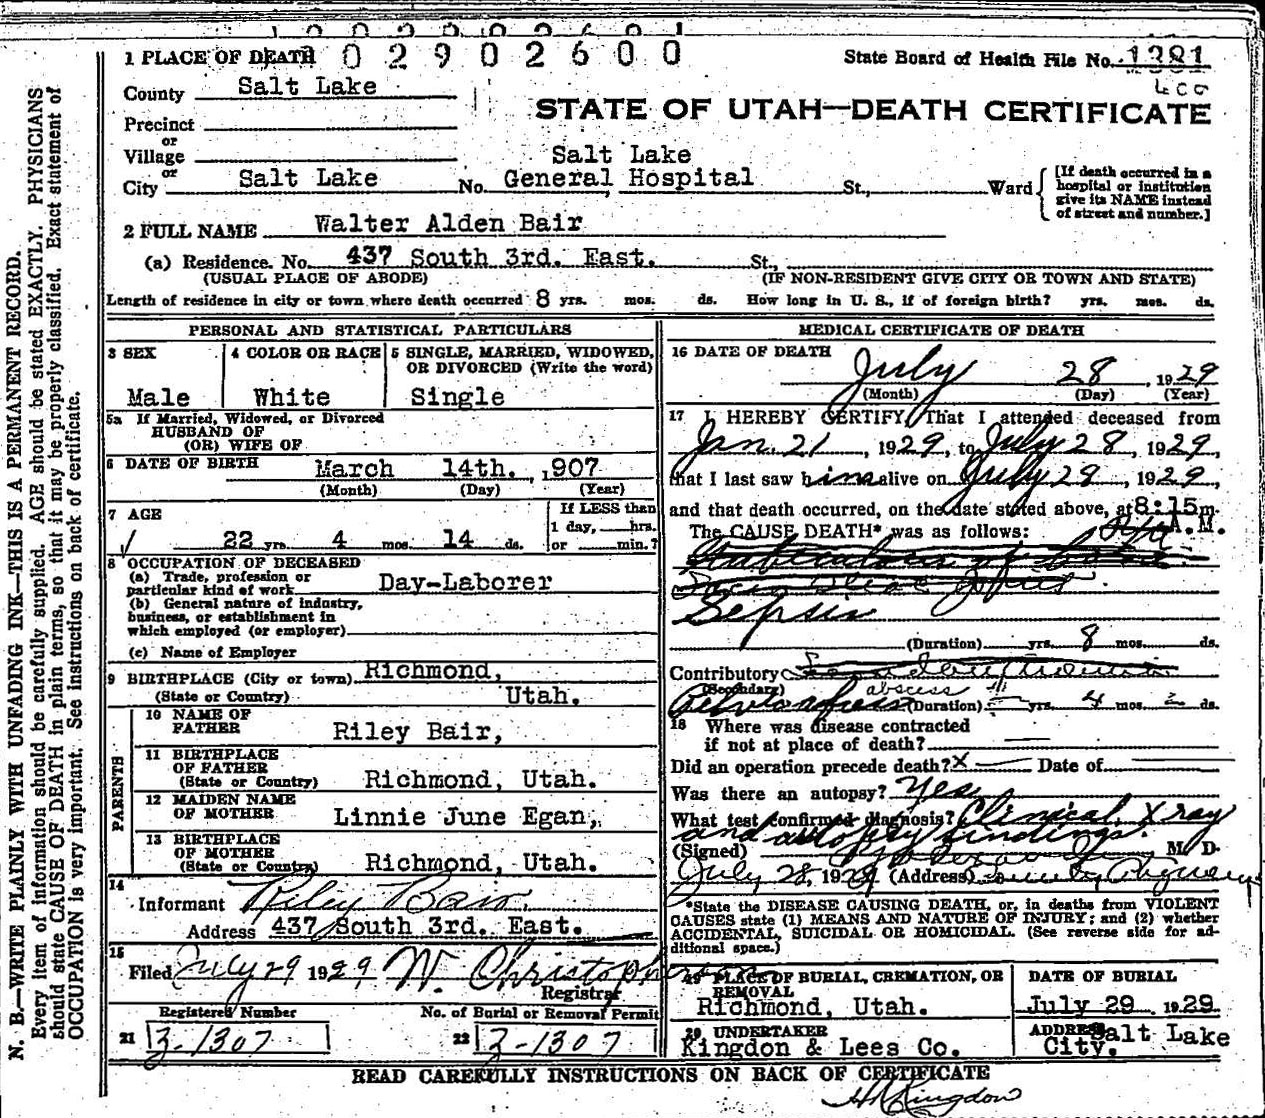 1 PLACE OF DEATH 0 2 9 0 2 6 0 0 State Board of Health File No. 1381
County Salt Lake
STATE OF UTAH—DEATH CERTIFICATE
Precinct
or
Village
or
City Salt Lake No. Salt Lake General Hospital St., Ward
[If death occurred in a
hospital or institution
give its NAME instead
of street and number.]
2 FULL NAME Walter Alden Bair
(a) Residence. No. 437 South 3rd. East. St.,
(USUAL PLACE OF ABODE) (IF NON-RESIDENT GIVE CITY OR TOWN AND STATE)
Length of residence in city or town where death occurred 8 yrs. mos. ds. How long in U. S., if of foreign birth? yrs. mos. ds.
PERSONAL AND STATISTICAL PARTICULARS
3 SEX 4 COLOR OR RACE 5 SINGLE, MARRIED, WIDOWED,
OR DIVORCED (Write the word)
Male White Single
5a If Married, Widowed, or Divorced
HUSBAND OF
(OR) WIFE OF
6 DATE OF BIRTH March 14th. ,907
(Month) (Day) (Year)
7 AGE If LESS than
1 day, hrs.
22 yrs. 4 mos. 14 ds. or min.?
8 OCCUPATION OF DECEASED
(a) Trade, profession or
particular kind of work Day-Laborer
(b) General nature of industry,
business, or establishment in
which employed (or employer)
(c) Name of Employer
9 BIRTHPLACE (City or town) Richmond,
(State or Country) Utah.
PARENTS
10 NAME OF
FATHER Riley Bair,
11 BIRTHPLACE
OF FATHER
(State or Country) Richmond, Utah.
12 MAIDEN NAME
OF MOTHER Linnie June Egan,
13 BIRTHPLACE
OF MOTHER
(State or Country) Richmond, Utah.
14
Informant Riley Bair
Address 437 South 3rd. East.
15
Filed July 29 1929 W. Christopherson
Registrar
Registered Number No. of Burial or Removal Permit
21 3-1307 22 3-1307
MEDICAL CERTIFICATE OF DEATH
16 DATE OF DEATH
July 28, 1929
(Month) (Day) (Year)
17 I HEREBY CERTIFY, That I attended deceased from
Jan. 21, 1929, to July 28, 1929,
that I last saw him alive on July 28, 1929,
and that death occurred, on the date stated above, at 8:15 m.
The CAUSE DEATH* was as follows: A. M.
Sepsis
(Duration) yrs. 8 mos. ds.
Contributory
(Secondary) abscess
Pelvic (Duration) yrs. 4 mos. ds.
18 Where was disease contracted
if not at place of death?
Did an operation precede death? X Date of
Was there an autopsy? Yes
What test confirmed diagnosis? Clinical, X ray
and autopsy findings.
(Signed) M. D.
July 28, 1929 (Address)
*State the DISEASE CAUSING DEATH, or, in deaths from VIOLENT
CAUSES state (1) MEANS AND NATURE OF INJURY; and (2) whether
ACCIDENTAL, SUICIDAL OR HOMICIDAL. (See reverse side for ad-
ditional space.)
19 PLACE OF BURIAL, CREMATION, OR
REMOVAL
Richmond, Utah.
DATE OF BURIAL
July 29 1929
20 UNDERTAKER
Kingdon & Lees Co.
ADDRESS Salt Lake
City.
READ CAREFULLY INSTRUCTIONS ON BACK OF CERTIFICATE
Kingdon
N. B.—WRITE PLAINLY WITH UNFADING INK—THIS IS A PERMANENT RECORD.
Every item of information should be carefully supplied. AGE should be stated EXACTLY. PHYSICIANS
should state CAUSE OF DEATH in plain terms, so that it may be properly classified. Exact statement of
OCCUPATION is very important. See instructions on back of certificate.